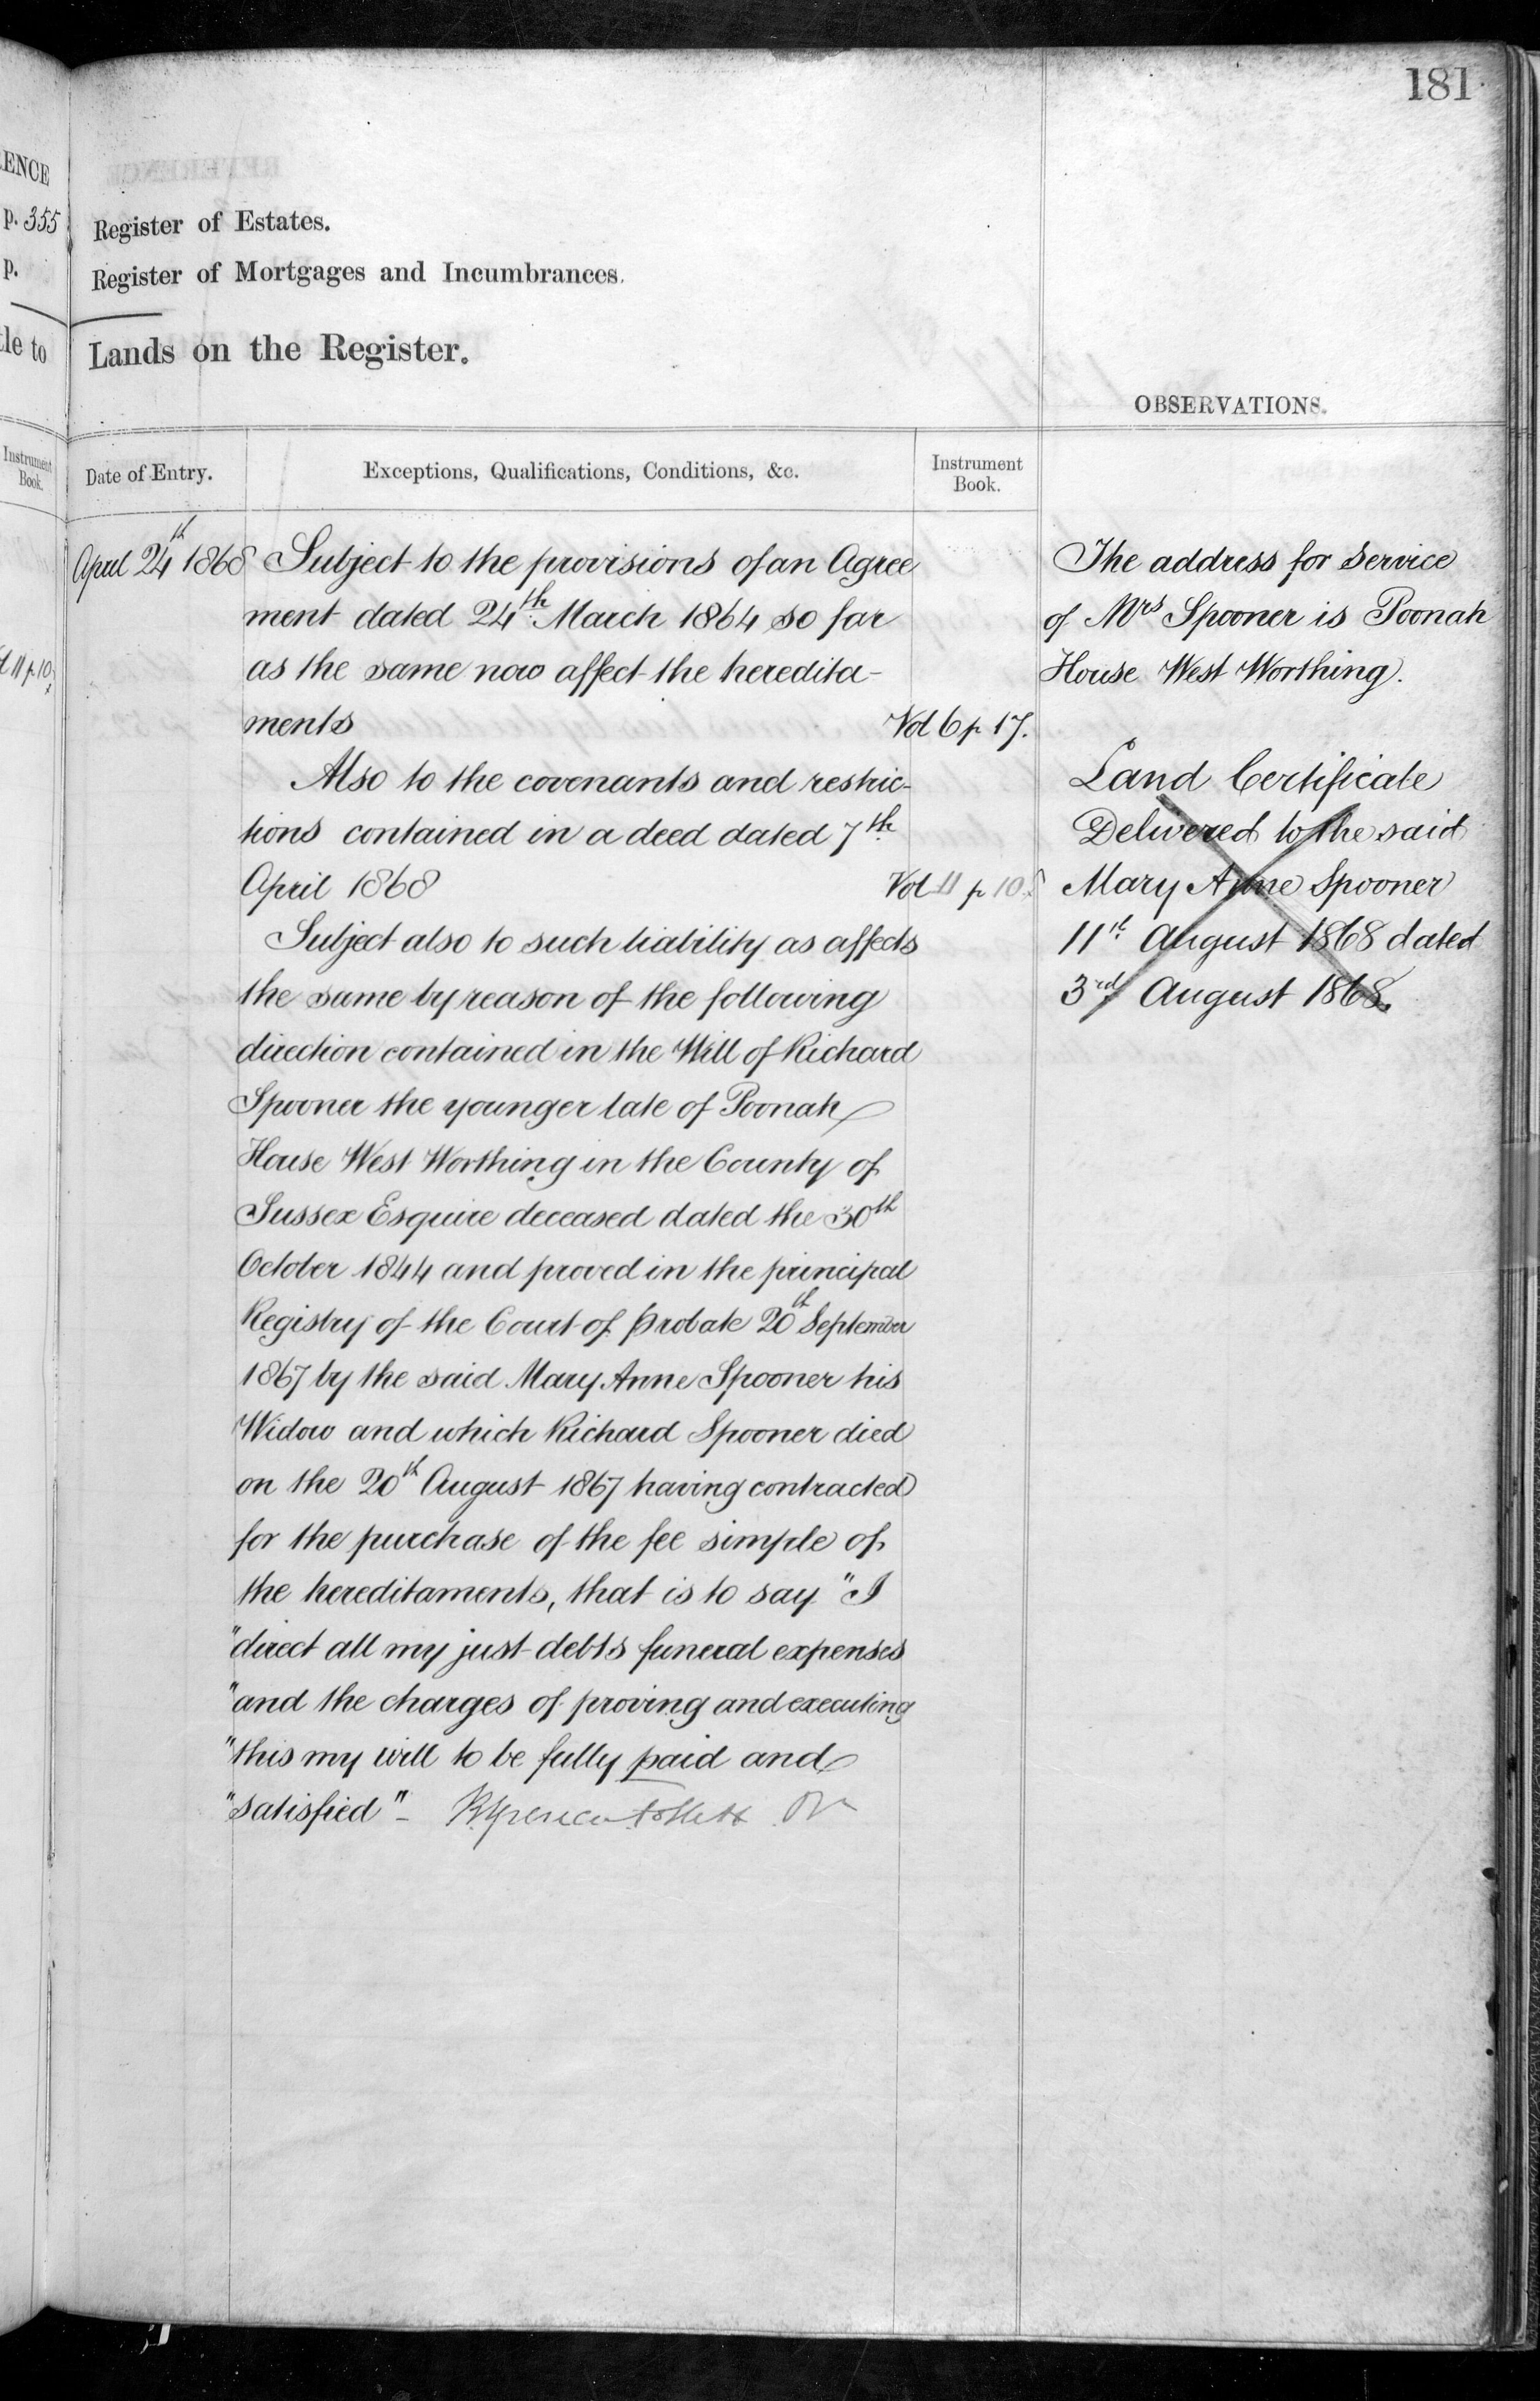 181
ENCE
p. 355
p.
le to
Instrument
Book.
Register of Estates.
Register of Mortgages and Incumbrances.
Lands on the Register.
OBSERVATIONS.
Date of Entry.
Exceptions, Qualifications, Conditions, &c.
Instrument
Book.
April 24th 1868
Subject to the provisions of an Agree
ment dated 24th March 1864 so far
as the same now affect the heredita-
ments
Vol 6 p 17.
Also to the covenants and restric-
tions contained in a deed dated 7th
April 1868
Vol 11 p 10
Subject also to such liability as affects
the same by reason of the following
direction contained in the Will of Richard
Spooner the younger late of Poonah
House West Worthing in the County of
Sussex Esquire deceased dated the 30th
October 1844 and proved in the principal
Registry of the Court of Probate 20th September
1867 by the said Mary Anne Spooner his
Widow and which Richard Spooner died
on the 20th August 1867 having contracted
for the purchase of the fee simple of
the hereditaments, that is to say "I
"direct all my just debts funeral expenses
"and the charges of proving and executing
"this my will to be fully paid and
"satisfied" -
The address for service
of Mrs Spooner is Poonah
House West Worthing.
Land Certificate
Delivered to the said
Mary Anne Spooner
11th August 1868 dated
3rd August 1868.